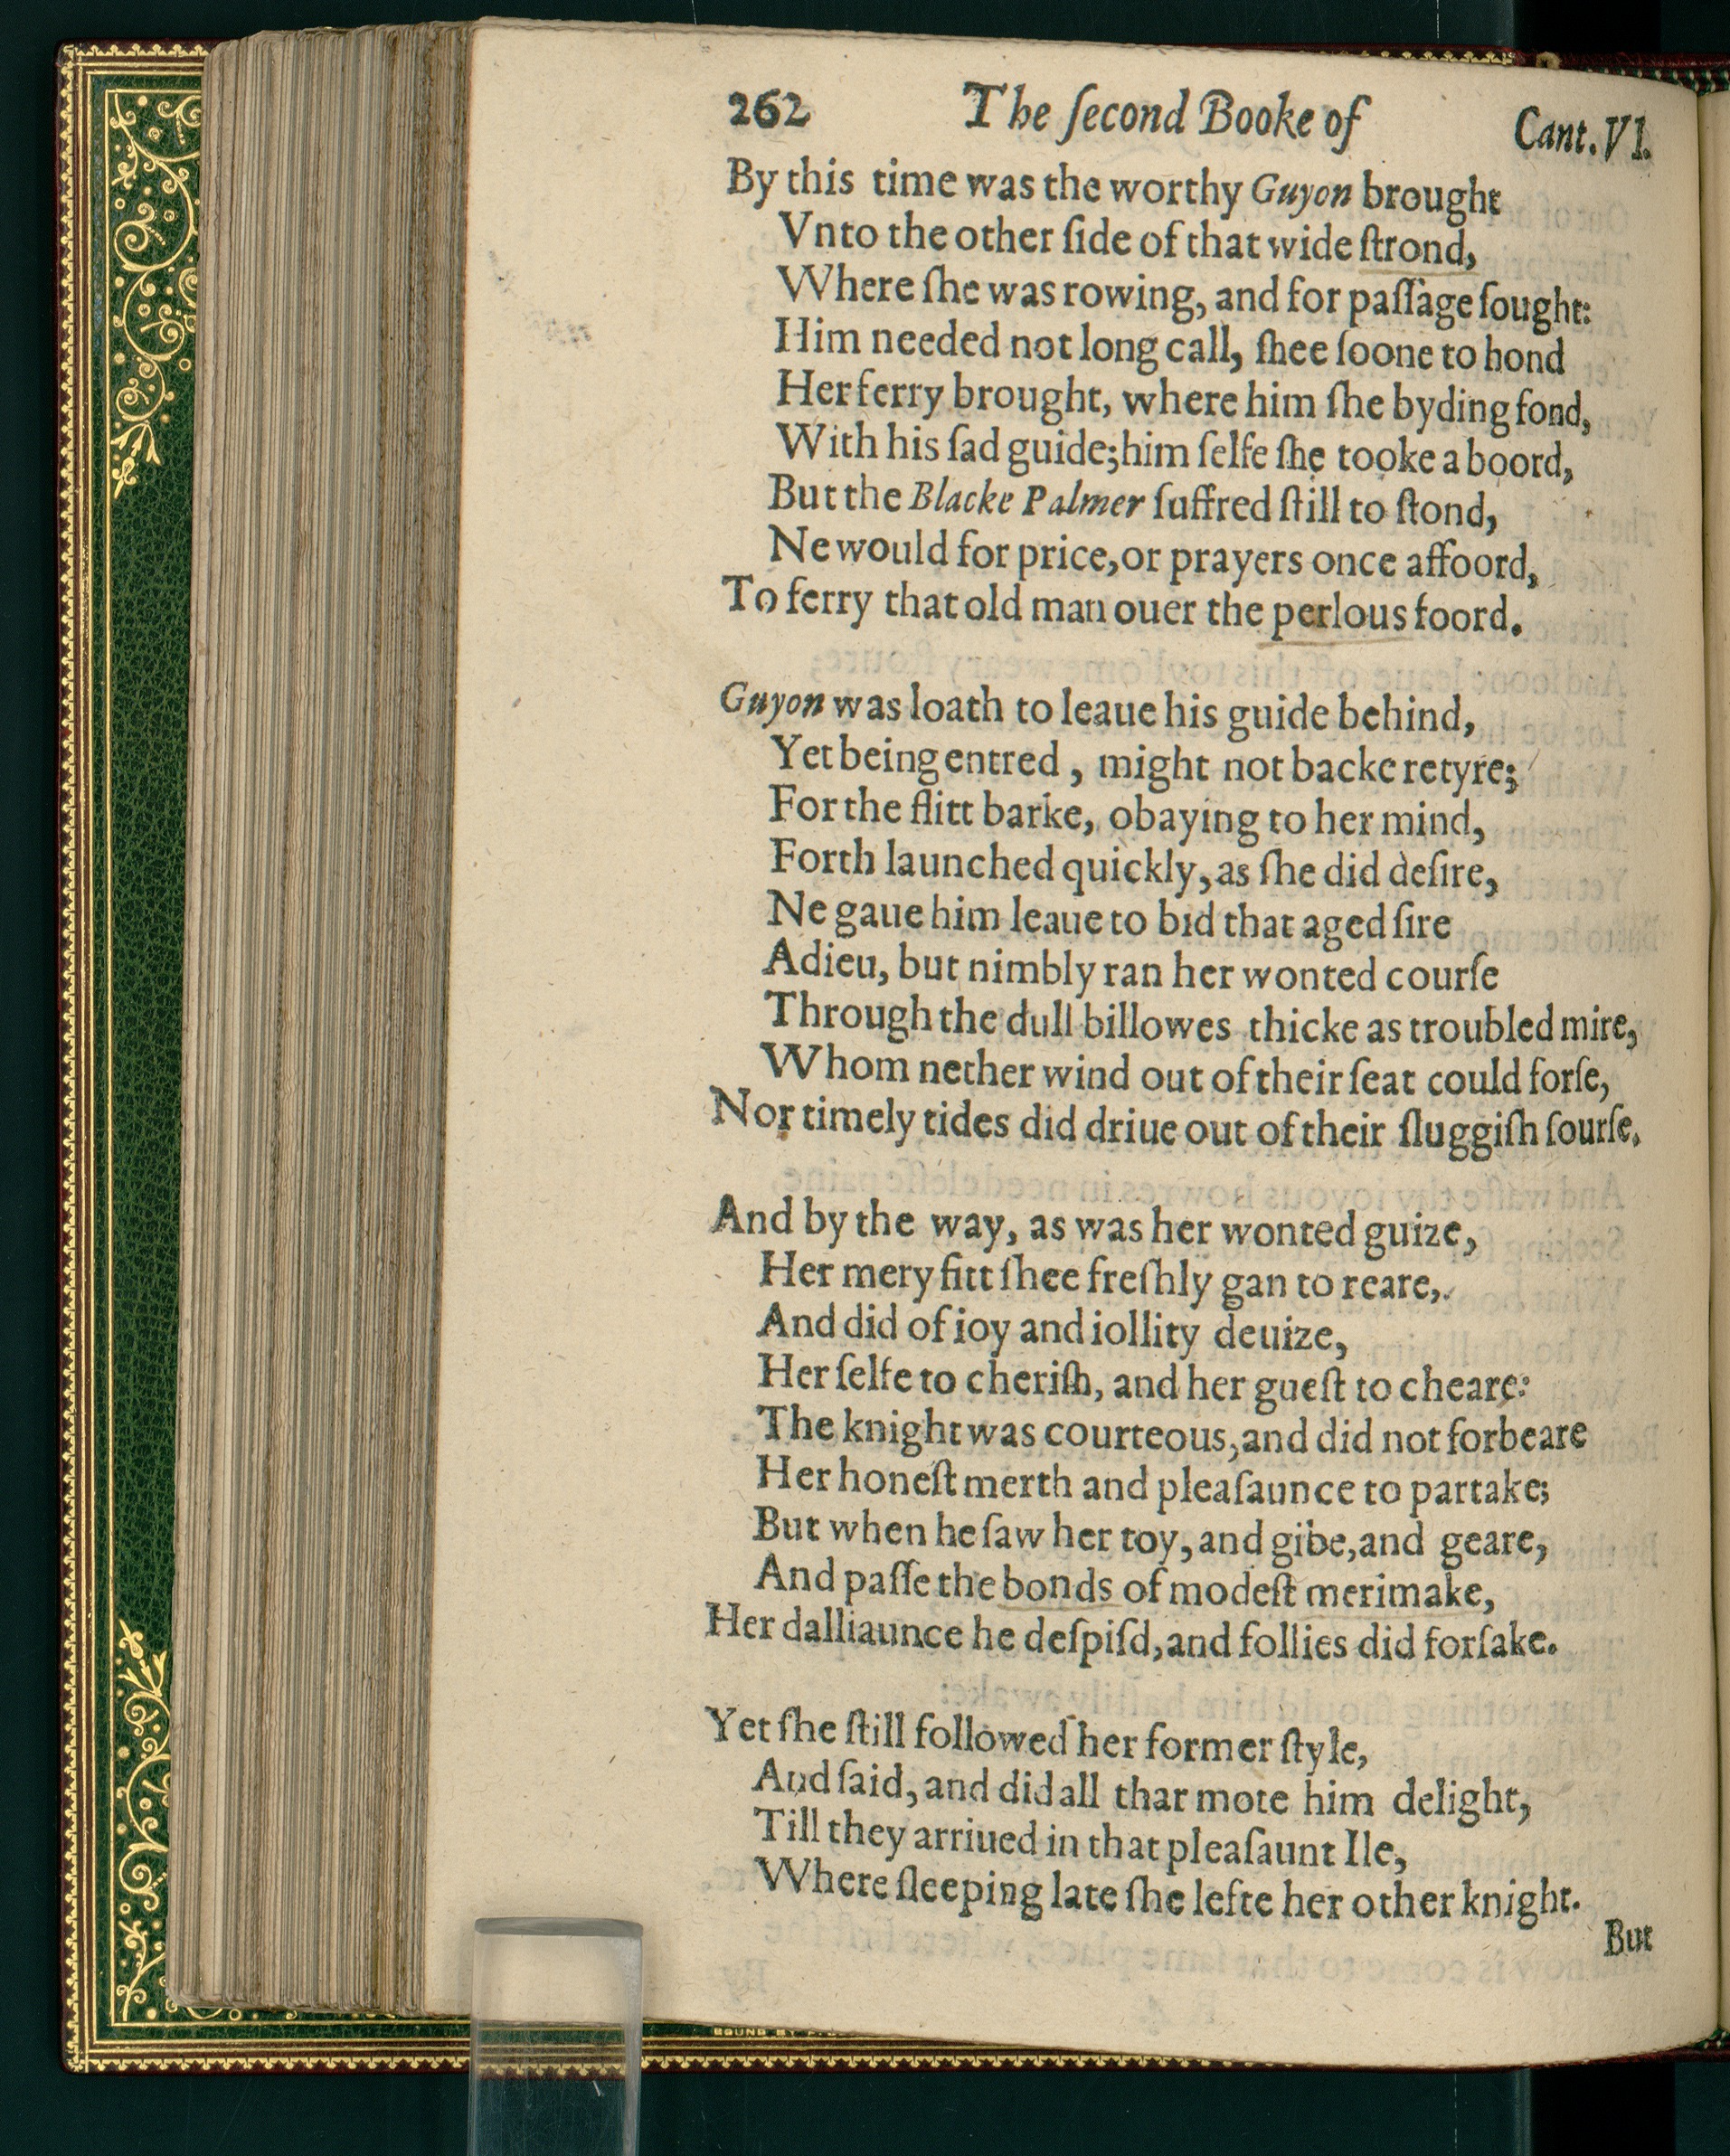 262 The ſecond Booke of Cant. VI.
By this time was the worthy Guyon brought
Vnto the other ſide of that wide ſtrond,
Where ſhe was rowing, and for paſſage ſought:
Him needed not long call, ſhee ſoone to hond
Her ferry brought, where him ſhe byding fond,
With his ſad guide; him ſelfe ſhe tooke a boord,
But the Blacke Palmer ſuffred ſtill to ſtond,
Ne would for price, or prayers once affoord,
To ferry that old man ouer the perlous foord.
Guyon was loath to leaue his guide behind,
Yet being entred, might not backe retyre;
For the flitt barke, obaying to her mind,
Forth launched quickly, as ſhe did deſire,
Ne gaue him leaue to bid that aged ſire
Adieu, but nimbly ran her wonted courſe
Through the dull billowes thicke as troubled mire,
Whom nether wind out of their ſeat could forſe,
Nor timely tides did driue out of their ſluggiſh ſourſe.
And by the way, as was her wonted guize,
Her mery fitt ſhee freſhly gan to reare,
And did of ioy and iollity deuize,
Her ſelfe to cheriſh, and her gueſt to cheare:
The knight was courteous, and did not forbeare
Her honeſt merth and pleaſaunce to partake;
But when he ſaw her toy, and gibe, and geare,
And paſſe the bonds of modeſt merimake,
Her dalliaunce he deſpiſd, and follies did forſake.
Yet ſhe ſtill followed her former ſtyle,
And ſaid, and did all thar mote him delight,
Till they arriued in that pleaſaunt Ile,
Where ſleeping late ſhe lefte her other knight.
But
BOUND BY